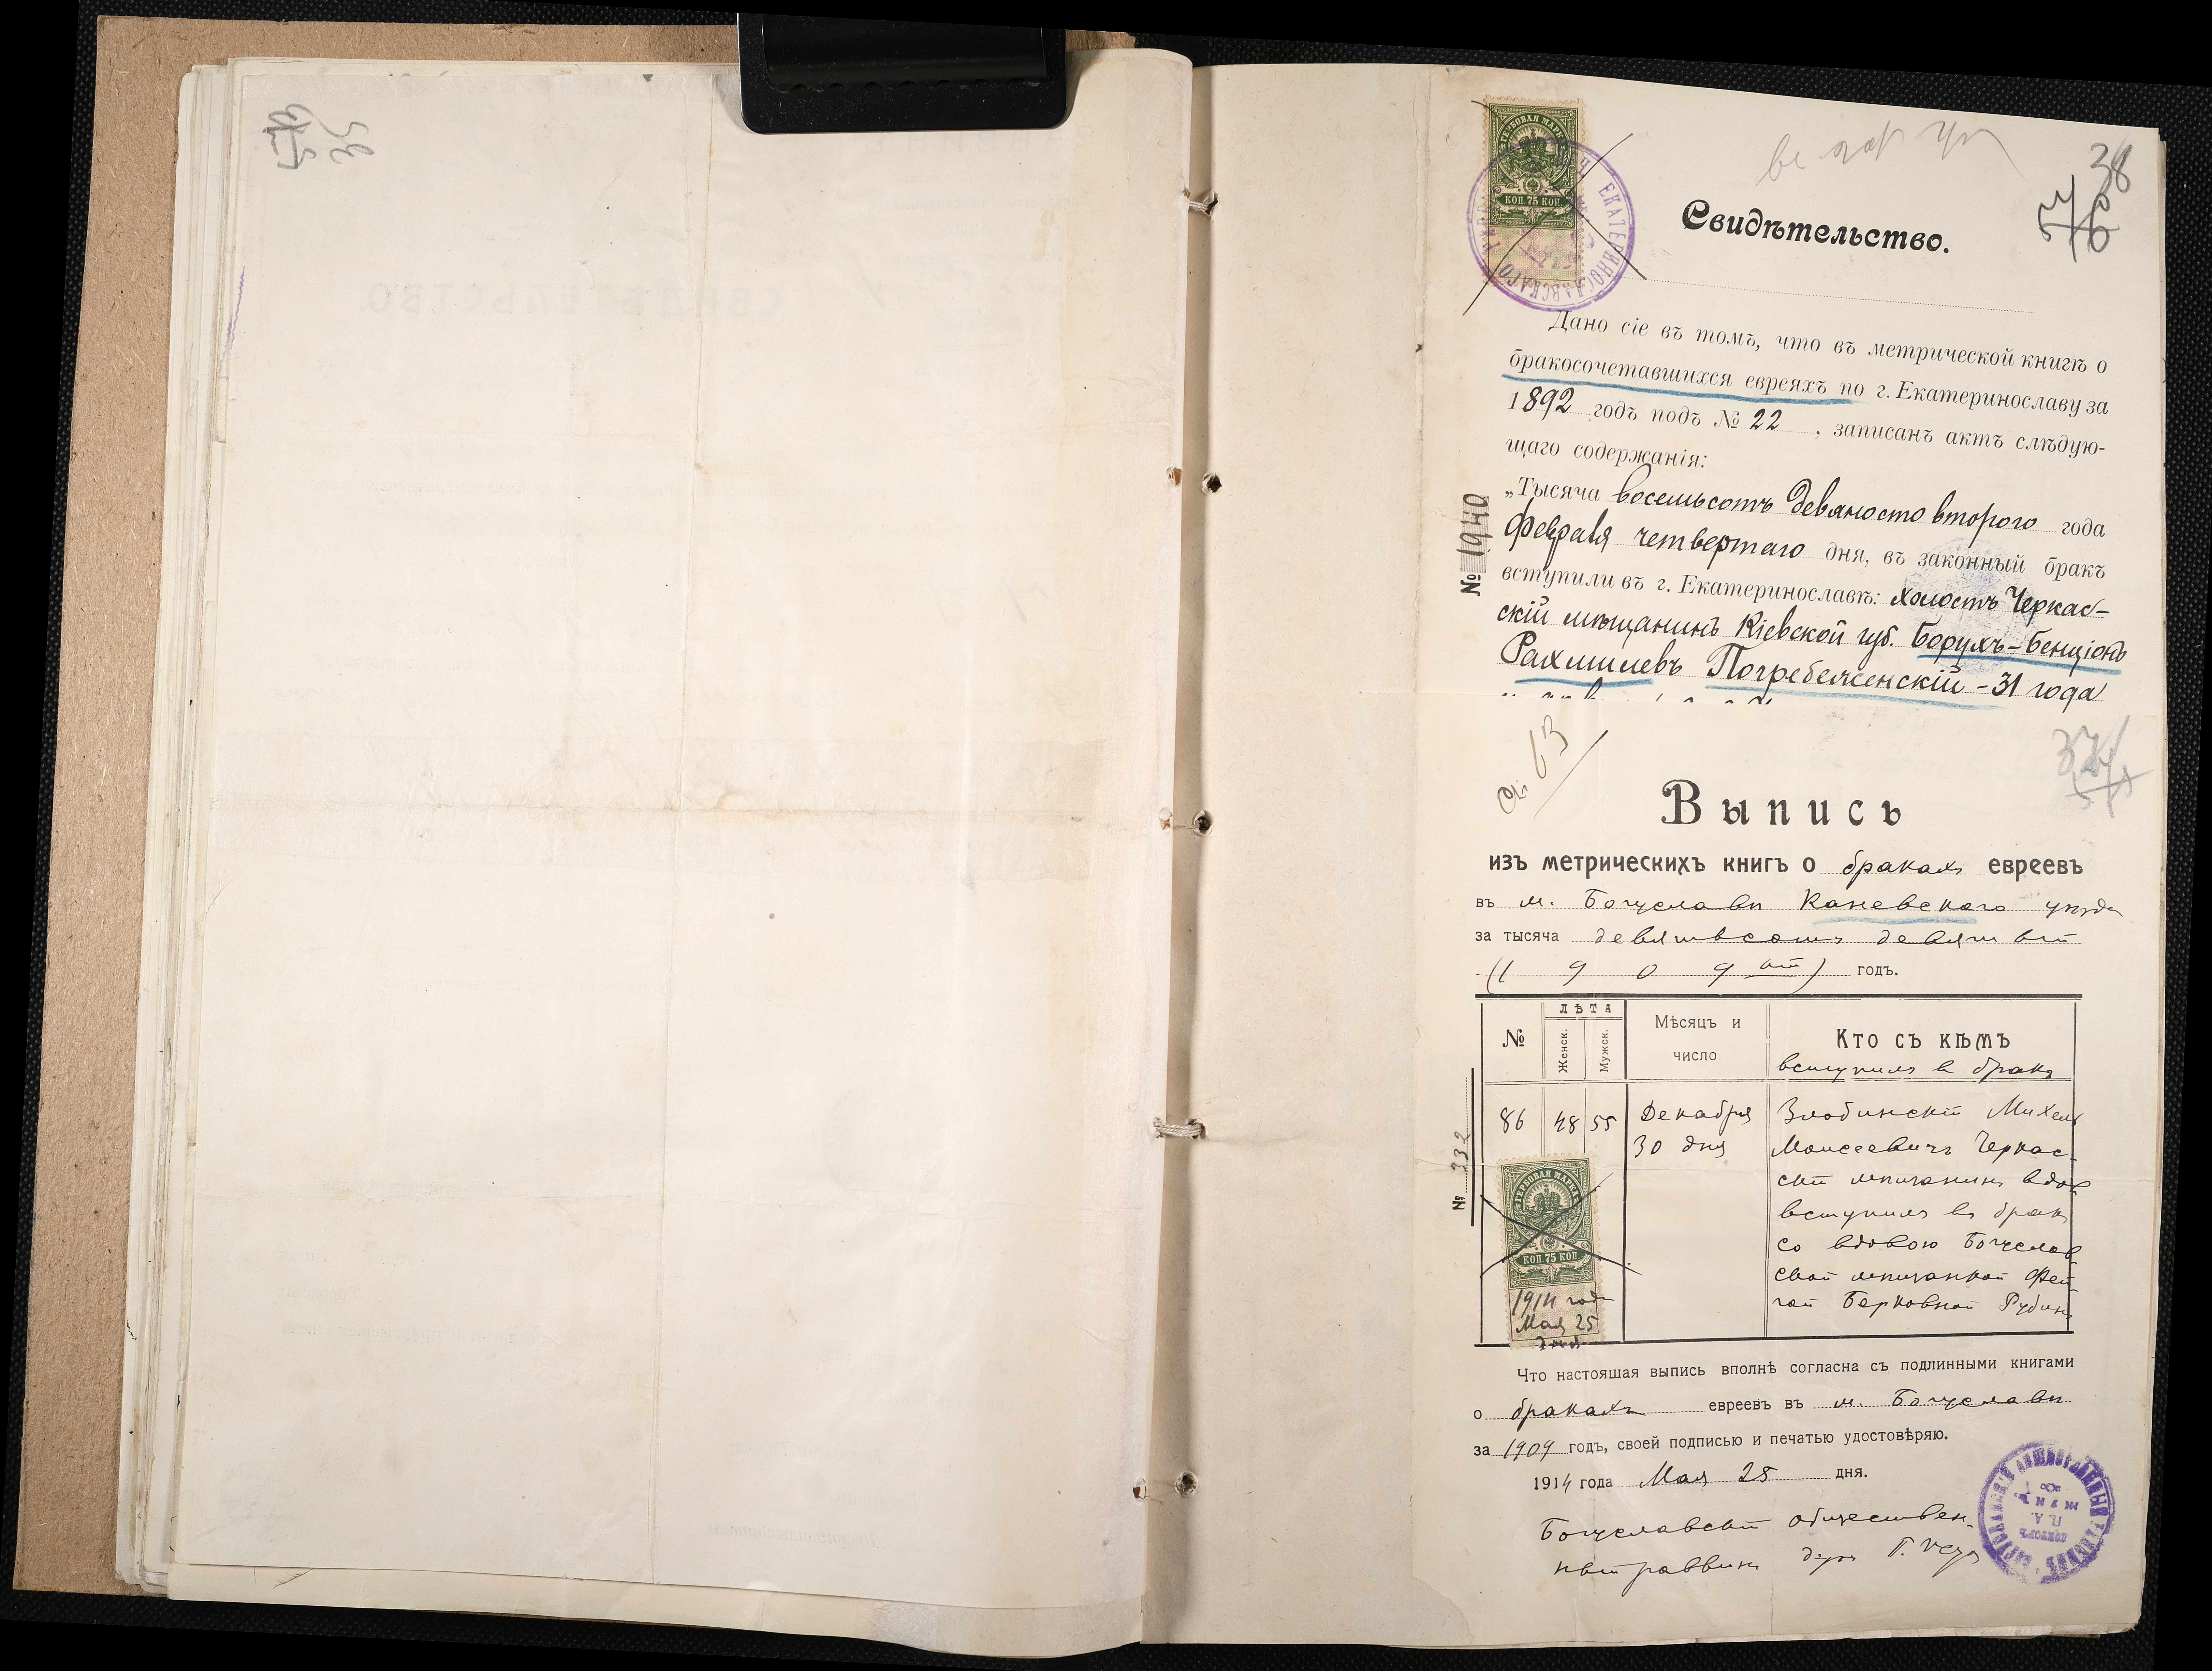 38
ГЕРБОВАЯ МАРКА
КОП. 75 КОП.
ЕКАТЕРИНОСЛАВСКАГО
Свидѣтельство.
Дано сіе въ томъ, что въ метрической книгѣ о
бракосочетавшихся евреяхъ по г. Екатеринославу за
1892 годъ подъ № 22 , записанъ актъ слѣдую-
щаго содержанія:
„Тысяча восемьсотъ девяносто второго года
февраля четвертаго дня, въ законный бракъ
вступили въ г. Екатеринославѣ: холостъ Черкас-
скій мѣщанинъ Кіевской губ. Борухъ-Бенціонъ
Рахмилевъ Погребеженскій - 31 года
№ 1940
Выпись
изъ метрическихъ книгъ о бракахъ евреевъ
въ м. Богуславѣ Каневскаго уѣзда
за тысяча девятьсотъ девятый
(1909ый) годъ.
№
ЛѢТА
Женск.
Мужск.
Мѣсяцъ и
число
Кто съ кѣмъ
вступилъ в бракъ
86 48 55 Декабря
30 дня
Злобинскій Михель
Моисеевичъ Черкас-
скій мѣщанинъ вдов
вступилъ въ бракъ
со вдовою Богуслав
ской мѣщанкой Фей
гой Берковной Рубин
№ 332
ГЕРБОВАЯ МАРКА
КОП. 75 КОП.
1914 года
Мая 25
дня
Что настоящая выпись вполнѣ согласна съ подлинными книгами
о бракахъ евреевъ въ м. Богуславѣ
за 1909 годъ, своей подписью и печатью удостовѣряю.
1914 года Мая 25 дня.
Богуславскій обществен-
ный раввинъ